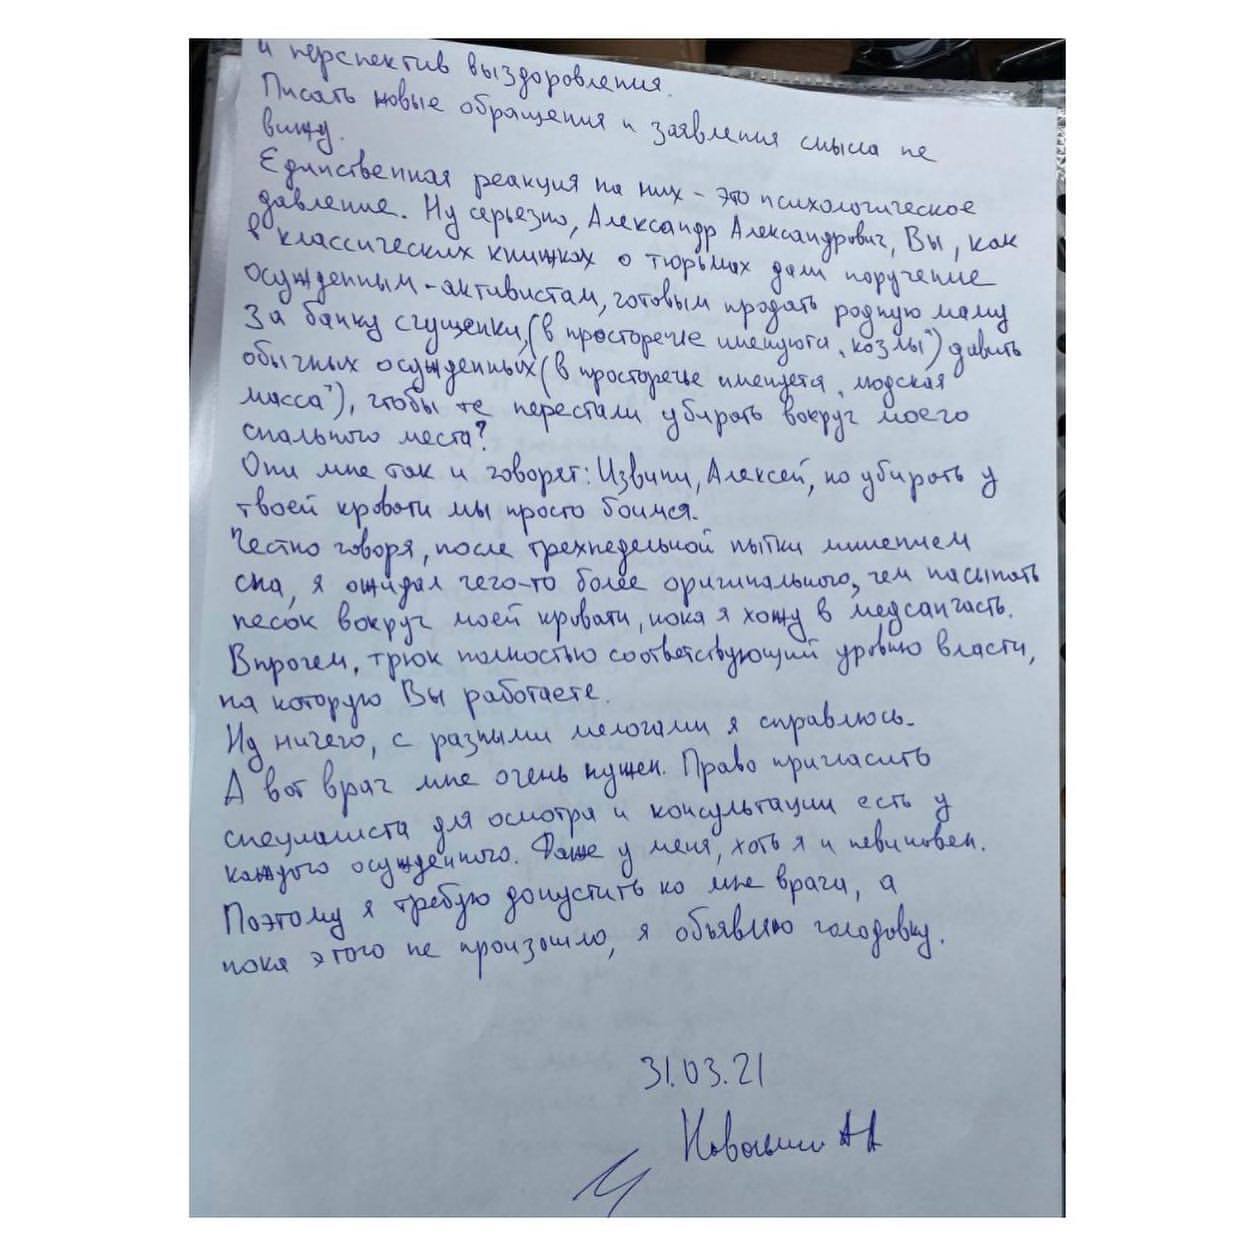 и перспектив выздоровления.
Писать новые обращения и заявления смысла не
вижу.
Единственная реакция на них - это психологическое
давление. Ну серьезно, Александр Александрович, Вы, как
в классических книжках о тюрьмах дали поручение
осужденным-активистам, готовым продать родную маму
за банку сгущенки, (в просторечье именуются „козлы") давить
обычных осужденных (в просторечье именуется „людская
масса"), чтобы те перестали убирать вокруг моего
спального места?
Они мне так и говорят: Извини, Алексей, но убирать у
твоей кровати мы просто боимся.
Честно говоря, после трехнедельной пытки лишением
сна, я ожидал чего-то более оригинального, чем насыпать
песок вокруг моей кровати, пока я хожу в медсанчасть.
Впрочем, трюк полностью соответствующий уровню власти,
на которую Вы работаете.
Ну ничего, с разными мелочами я справлюсь.
А вот врач мне очень нужен. Право пригласить
специалиста для осмотра и консультации есть у
каждого осужденного. Даже у меня, хоть я и невиновен.
Поэтому я требую допустить ко мне врача, а
пока этого не произошло, я объявляю голодовку.
31.03.21
Навальный А А